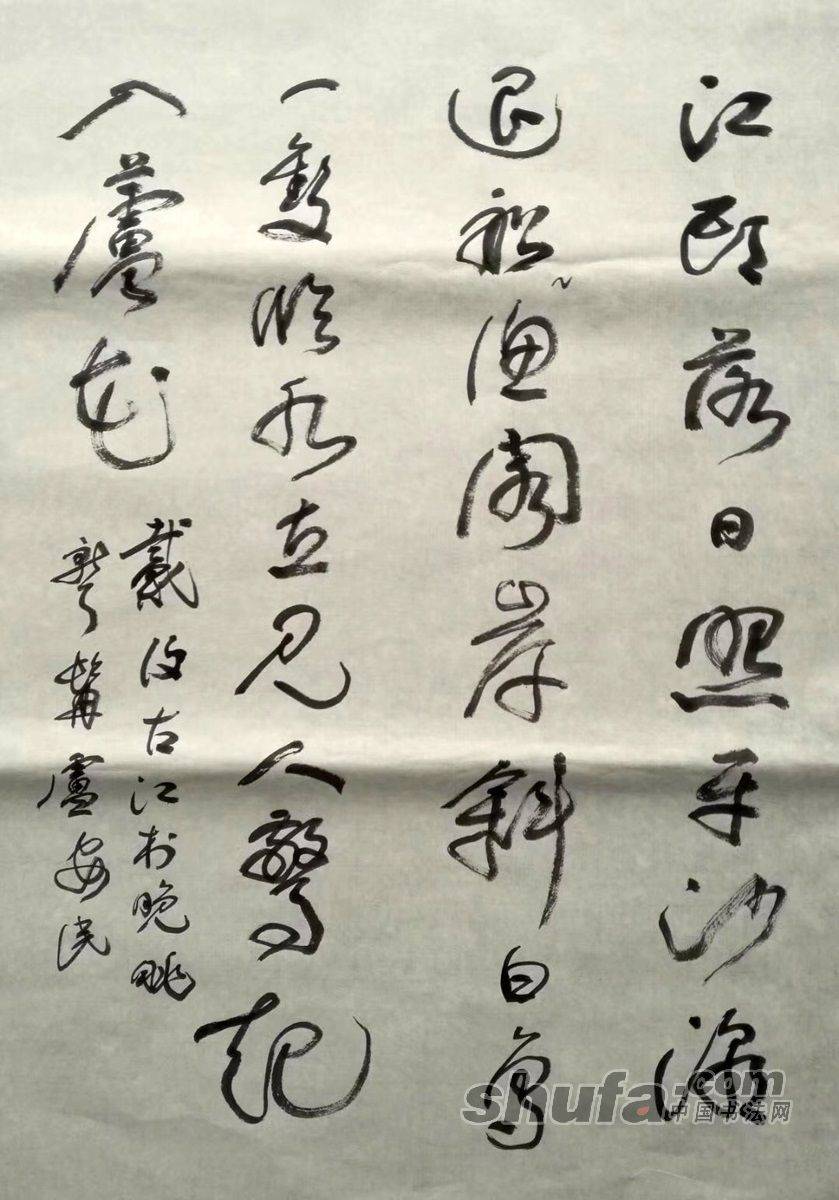 江頭落日照平沙潮
退船漁閣岸斜白鳥
一雙臨水立見人驚起
入蘆花
戴復古江村晚眺
盧安
shufa.com
中国书法网